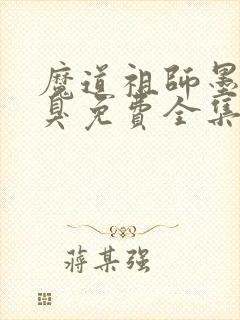 魔道祖師墨
臭免費全集
蔣某强